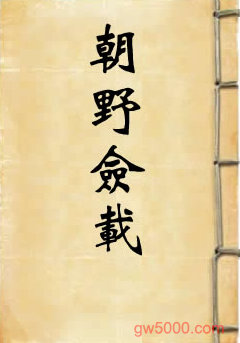 朝野僉載
gw5000.com